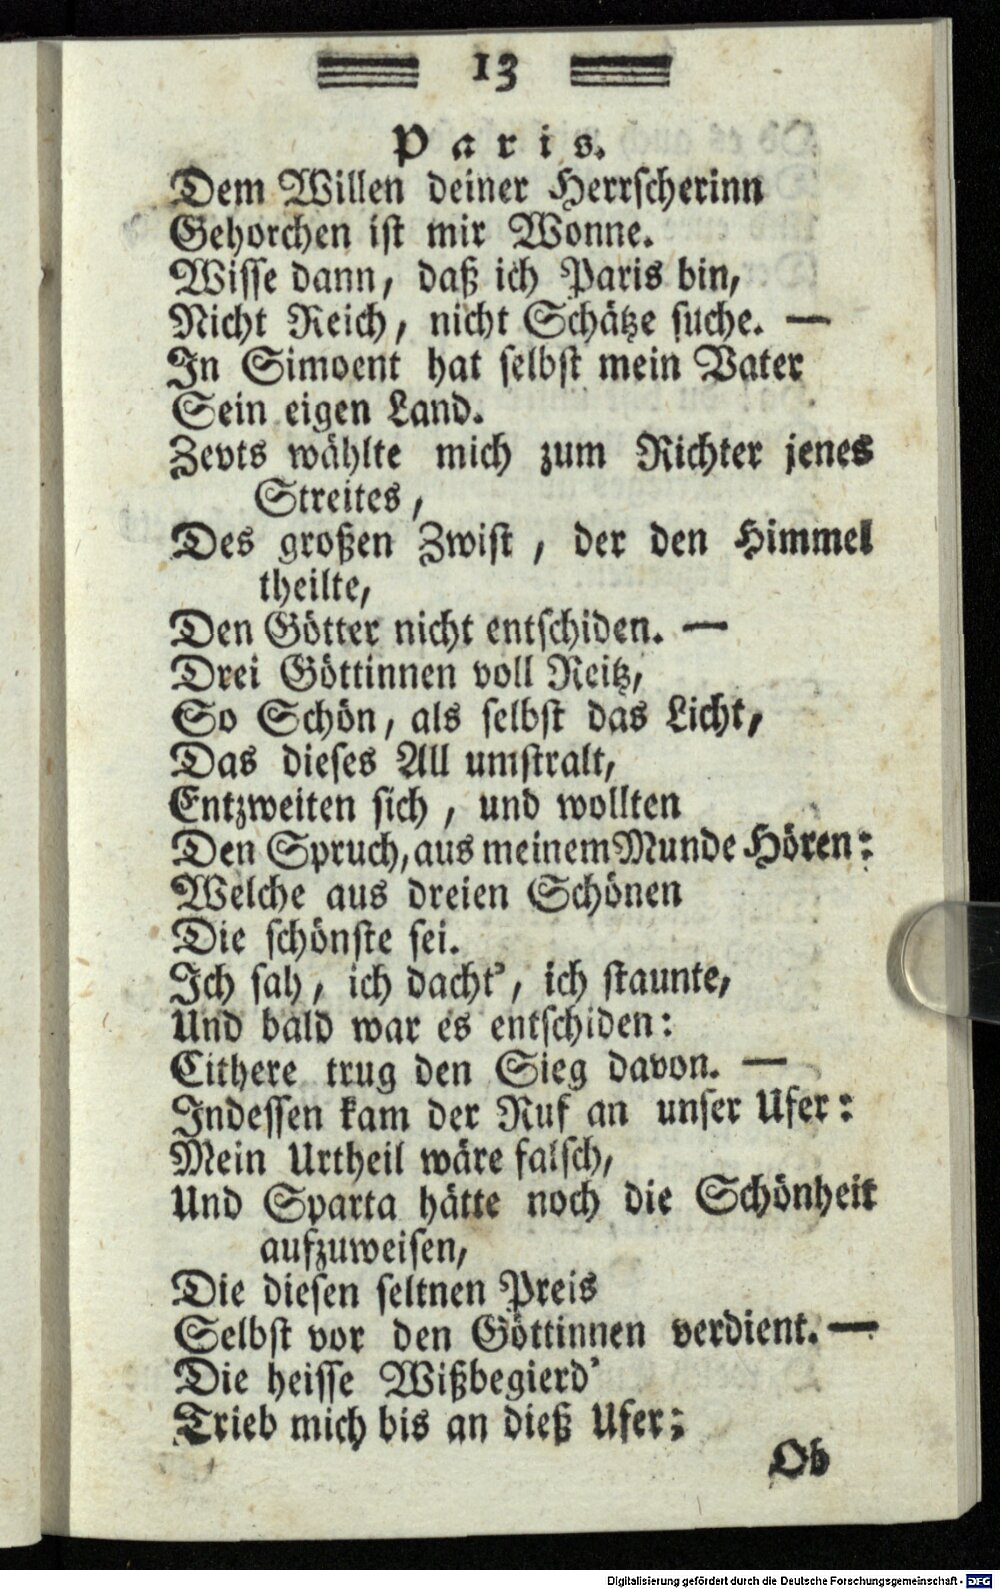 13
Paris.
Dem Willen deiner Herrscherinn
Gehorchen ist mir Wonne.
Wisse dann, daß ich Paris bin,
Nicht Reich, nicht Schätze suche. —
In Simoent hat selbst mein Vater
Sein eigen Land.
Zevts wählte mich zum Richter jenes
Streites,
Des großen Zwist, der den Himmel
theilte,
Den Götter nicht entschiden. —
Drei Göttinnen voll Reitz,
So Schön, als selbst das Licht,
Das dieses All umstralt,
Entzweiten sich, und wollten
Den Spruch, aus meinem Munde Hören:
Welche aus dreien Schönen
Die schönste sei.
Ich sah, ich dacht', ich staunte,
Und bald war es entschiden:
Cithere trug den Sieg davon. —
Indessen kam der Ruf an unser Ufer:
Mein Urtheil wäre falsch,
Und Sparta hätte noch die Schönheit
aufzuweisen,
Die diesen seltnen Preis
Selbst vor den Göttinnen verdient. —
Die heisse Wißbegierd'
Trieb mich bis an dieß Ufer;
Ob
Digitalisierung gefördert durch die Deutsche Forschungsgemeinschaft - DFG